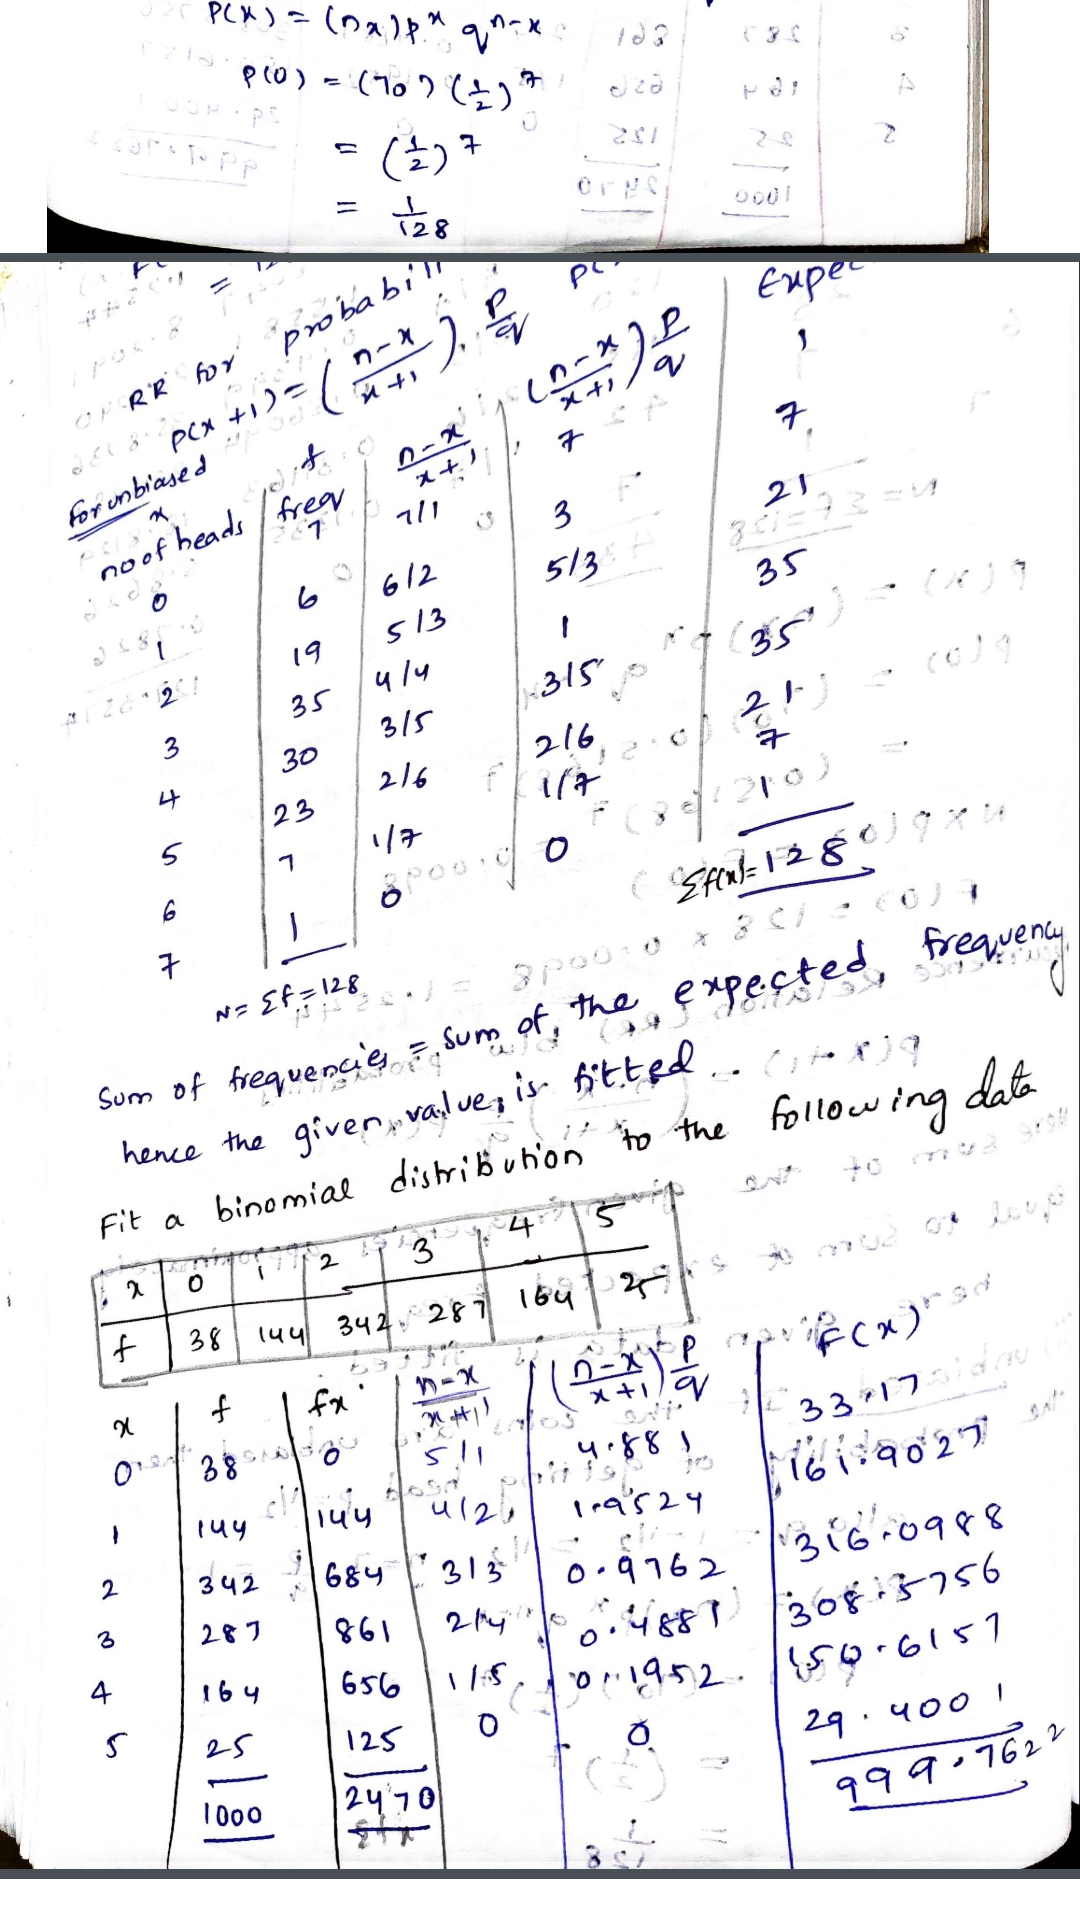 P(x) = (nx) p^x q^n-x
P(0) = (70) (1/2)^7
= (1/2)^7
= 1/128
RR for
P(x+1) = (n-x / x+1). p/q
For unbiased
x no of heads | f freq | n-x / x+1 | (n-x / x+1) p/q |
0 | 7 | 7/1 | 7 | 1
1 | 6 | 6/2 | 3 | 7
2 | 19 | 5/3 | 5/3 | 21
3 | 35 | 4/4 | 1 | 35
4 | 30 | 3/5 | 3/5 | 35
5 | 23 | 2/6 | 2/6 | 21
6 | 7 | 1/7 | 1/7 | 7
7 | 1 | 0 | 0 | 1
N = Σf = 128
Σf(x) = 128
Sum of frequencies = sum of the expected frequency
hence the given value is fitted.
Fit a binomial distribution to the following data
x | 0 | 1 | 2 | 3 | 4 | 5
f | 38 | 144 | 342 | 287 | 164 | 25
x | f | fx | n-x / x+1 | (n-x / x+1) p/q | F(x)
0 | 38 | 0 | 5/1 | 4.881 | 33.17
1 | 144 | 144 | 4/2 | 1.9524 | 161.9027
2 | 342 | 684 | 3/3 | 0.9762 | 316.0988
3 | 287 | 861 | 2/4 | 0.4881 | 308.5756
4 | 164 | 656 | 1/5 | 0.1952 | 150.6157
5 | 25 | 125 | 0 | 0 | 29.4001
1000 | 2470 | 999.7622